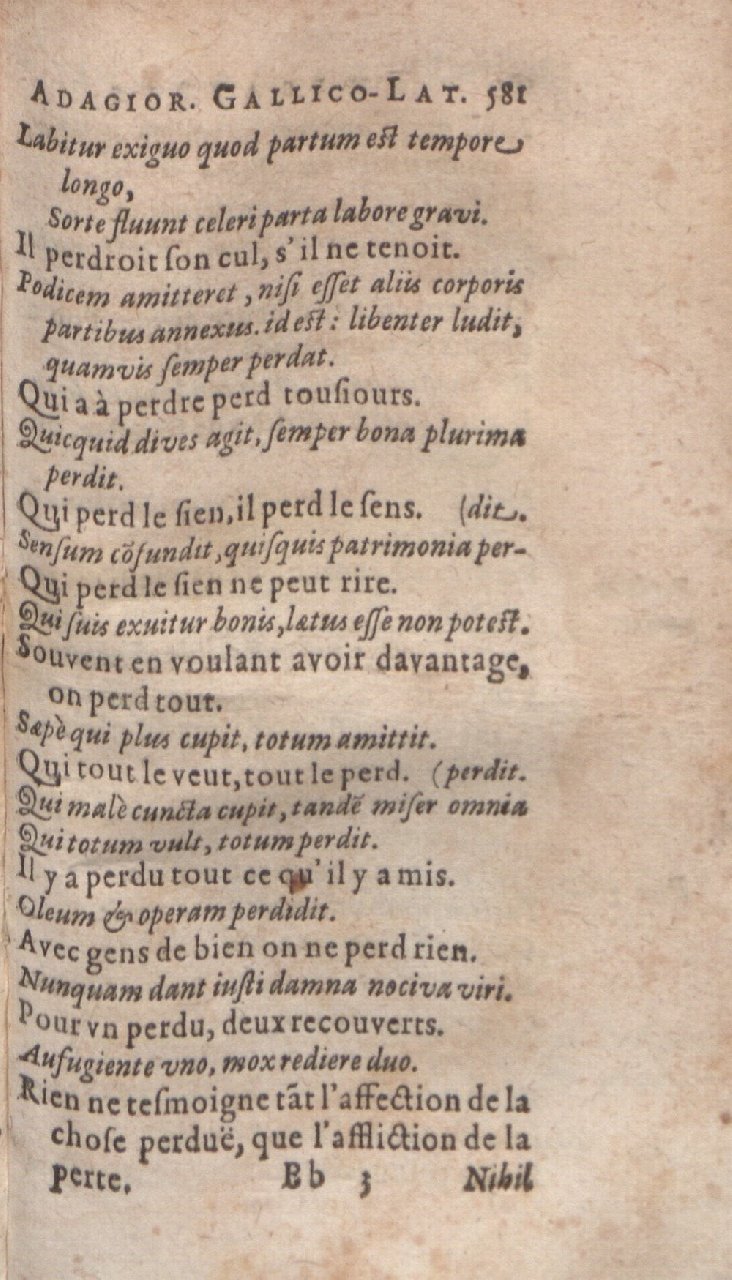 ADAGIOR. GALLICO-LAT. 581
Labitur exiguo quod partum est tempore
longo,
Sorte fluunt celeri parta labore gravi.
Il perdroit ſon cul, s'il ne tenoit.
Podicem amitteret, niſi eſſet aliis corporis
partibus annexus. id est: libenter ludit,
quamvis ſemper perdat.
Qui a à perdre perd touſiours.
Quicquid dives agit, ſemper bona plurima
perdit.
Qui perd le ſien, il perd le ſens. (dit.
Senſum cõfundit, quiſquis patrimonia per-
Qui perd le ſien ne peut rire.
Qui ſuis exuitur bonis, lætus eſſe non potest.
Souvent en voulant avoir davantage,
on perd tout.
Sæpè qui plus cupit, totum amittit.
Qui tout le veut, tout le perd. (perdit.
Qui malè cuncta cupit, tandẽ miſer omnia
Qui totum vult, totum perdit.
Il y a perdu tout ce qu'il y a mis.
Oleum & operam perdidit.
Avec gens de bien on ne perd rien.
Nunquam dant iuſti damna nociva viri.
Pour vn perdu, deux recouverts.
Aufugiente vno, mox rediere duo.
Rien ne teſmoigne tãt l'affection de la
choſe perduë, que l'affliction de la
perte. Bb 3 Nihil